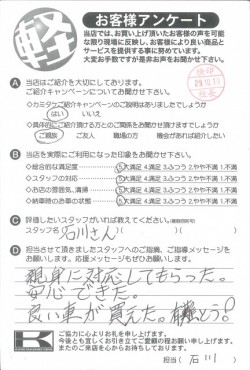 軽
お客様アンケート
当店では、お買い上げ頂いたお客様の声を可能
な限り現場に反映し、お客様により良い商品と
サービスを提供する事に努めています。
大変お手数ですが是非お声をお聞かせ下さい。
A 当店はご紹介を大切にしております。
ご紹介キャンペーンについてお聞かせ下さい。
◇カミタケご紹介キャンペーンのご説明はありましたでしょうか
はい いいえ
◇具体的にご紹介頂ける方とのご関係をお聞かせ頂けますでしょうか
ご親族 ご友人 職場の方 機会があれば紹介したい
B 当店を実際にご利用になった印象をお聞かせ下さい。
◇総合的な満足度 5.大満足 4.満足 3.ふつう 2.やや不満 1.不満
◇スタッフの対応 5.大満足 4.満足 3.ふつう 2.やや不満 1.不満
◇お店の雰囲気、清掃 5.大満足 4.満足 3.ふつう 2.やや不満 1.不満
◇納車時のお車の状態 5.大満足 4.満足 3.ふつう 2.やや不満 1.不満
C 評価したいスタッフがいれば教えてください。
スタッフ名 石川さん
D 担当させて頂きましたスタッフへのご指摘、ご指導メッセージを
お願いします。応援メッセージもぜひお願いします。
親身に対応してもらった。
安心できた。
良い車が買えた。有難とう!
K
ご協力に心よりお礼を申し上げます。
今後とも宜しくお引き立てご愛顧の程お願い申し上げます。
またのご来店を心からお待ちしております。
担当( 石川 )